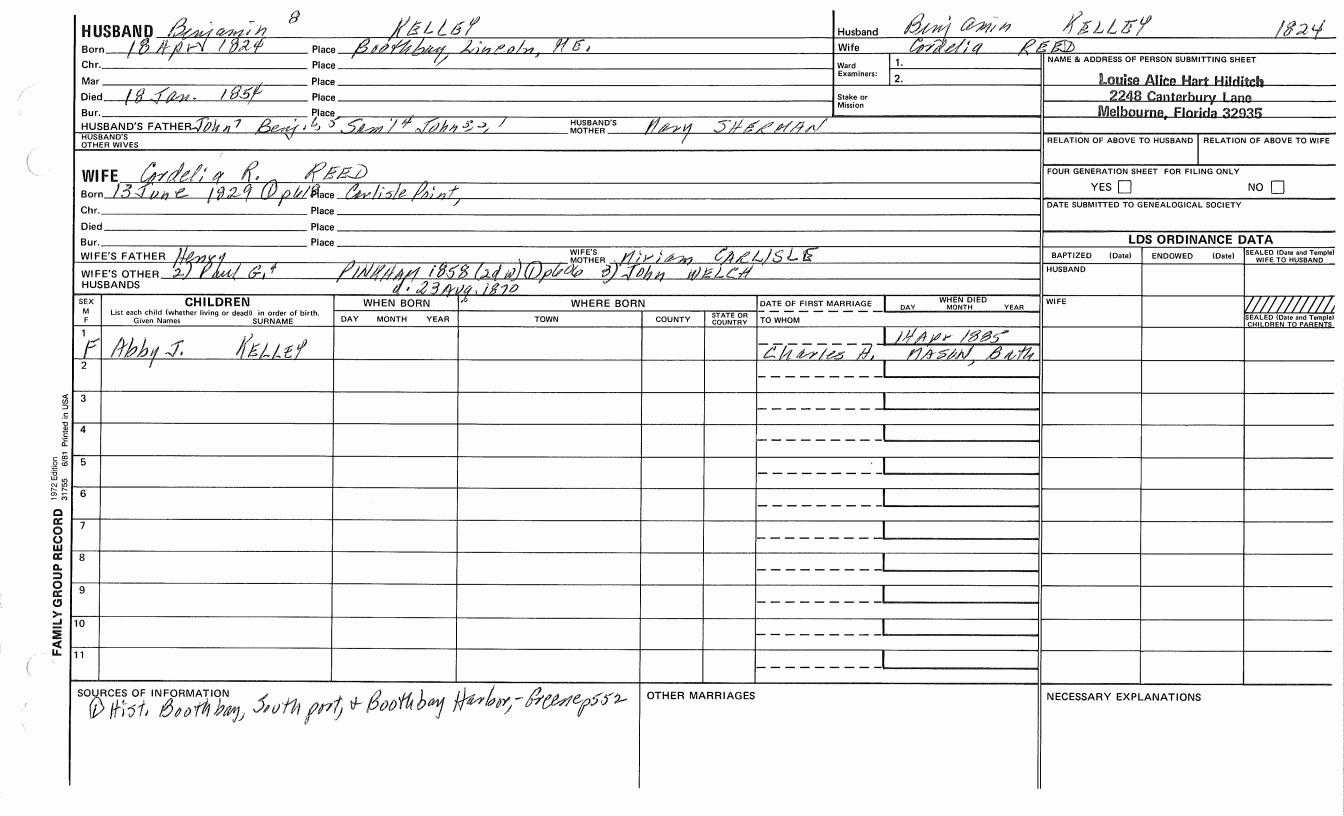 HUSBAND Benjamin 8 KELLEY
Born 18 Apr 1824 Place Boothbay, Lincoln, ME.
Chr. Place
Mar Place
Died 18 Jan. 1854 Place
Bur. Place
HUSBAND'S FATHER John7 Benj.6,5 Sam'l4 John3,2,1 HUSBAND'S MOTHER Mary SHERMAN
HUSBAND'S OTHER WIVES
WIFE Cordelia R. REED
Born 13 June 1829 ① p618 Place Carlisle Point,
Chr. Place
Died Place
Bur. Place
WIFE'S FATHER Henry WIFE'S MOTHER Miriam CARLISLE
WIFE'S OTHER HUSBANDS 2) Paul G.4 PINKHAM 1858 (2d w) ① p606 3) John WELCH
d. 23 Aug. 1870
Husband Benjamin KELLEY 1824
Wife Cordelia REED
Ward Examiners: 1.
2.
Stake or Mission
NAME & ADDRESS OF PERSON SUBMITTING SHEET
Louise Alice Hart Hilditch
2248 Canterbury Lane
Melbourne, Florida 32935
RELATION OF ABOVE TO HUSBAND RELATION OF ABOVE TO WIFE
FOUR GENERATION SHEET FOR FILING ONLY
YES NO
DATE SUBMITTED TO GENEALOGICAL SOCIETY
LDS ORDINANCE DATA
BAPTIZED (Date) ENDOWED (Date) SEALED (Date and Temple) WIFE TO HUSBAND
HUSBAND
WIFE
SEALED (Date and Temple) CHILDREN TO PARENTS
SEX M F CHILDREN WHEN BORN WHERE BORN DATE OF FIRST MARRIAGE WHEN DIED
List each child (whether living or dead) in order of birth. DAY MONTH YEAR
Given Names SURNAME DAY MONTH YEAR TOWN COUNTY STATE OR COUNTRY TO WHOM
1 14 Apr 1885
F Abby J. KELLEY Charles A. MASON, Bath
2
3
4
5
6
7
8
9
10
11
FAMILY GROUP RECORD 1972 Edition
31755 6/81 Printed in USA
SOURCES OF INFORMATION
① Hist. Boothbay, Southport, & Boothbay Harbor,- Greene p552
OTHER MARRIAGES
NECESSARY EXPLANATIONS